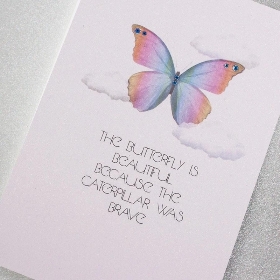 THE BUTTERFLY IS
BEAUTIFUL
BECAUSE THE
CATERPILLAR WAS
BRAVE